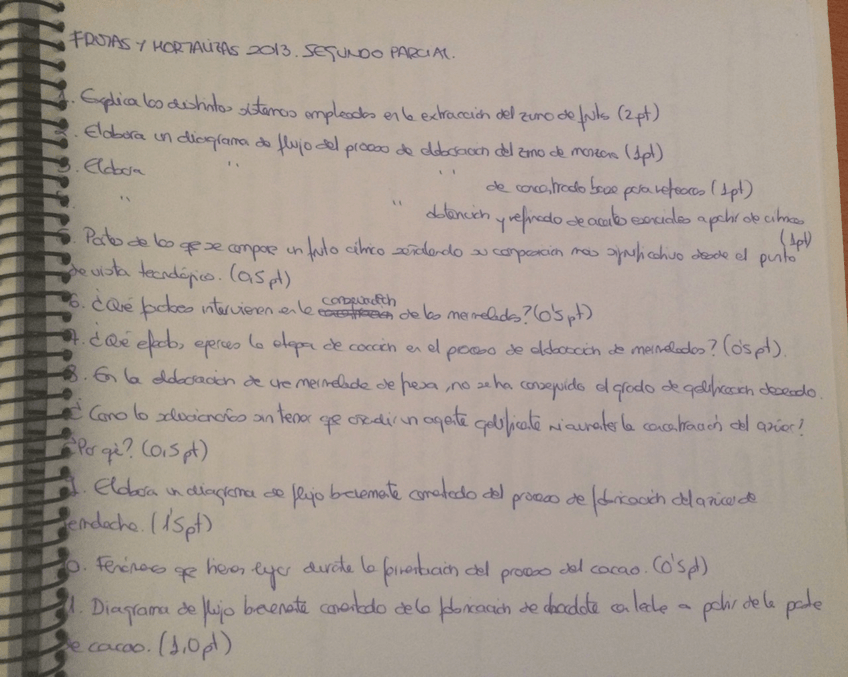 FRUTAS Y HORTALIZAS 2013. SEGUNDO PARCIAL.
1. Explica los distintos sistemas empleados en la extracción del zumo de fruta (2pt)
2. Elabora un diagrama de flujo del proceso de elaboración del zumo de manzana (1pt)
3. Elabora " " de concentrado base para refrescos (1pt)
" " obtención y refinado de aceites esenciales a partir de cítricos (1pt)
5. Partes de las que se compone un fruto cítrico señalando su composición más significativa desde el punto
de vista tecnológico. (0,5 pt)
6. ¿Qué factores intervienen en la conservación de las mermeladas? (0'5 pt)
7. ¿Qué efectos ejerce la etapa de cocción en el proceso de elaboración de mermeladas? (0'5 pt).
8. En la elaboración de una mermelada de fresa, no se ha conseguido el grado de gelificación deseado.
¿Cómo lo solucionarías sin tener que añadir un agente gelificante ni aumentar la concentración del azúcar?
¿Por qué? (0,5 pt)
9. Elabora un diagrama de flujo brevemente comentado del proceso de fabricación del azúcar de
remolacha. (1'5 pt)
0. Fenómenos que tienen lugar durante la fermentación del proceso del cacao. (0'5 pt)
1. Diagrama de flujo brevemente comentado de la fabricación de chocolate con leche a partir de la pasta
de cacao. (1,0 pt)